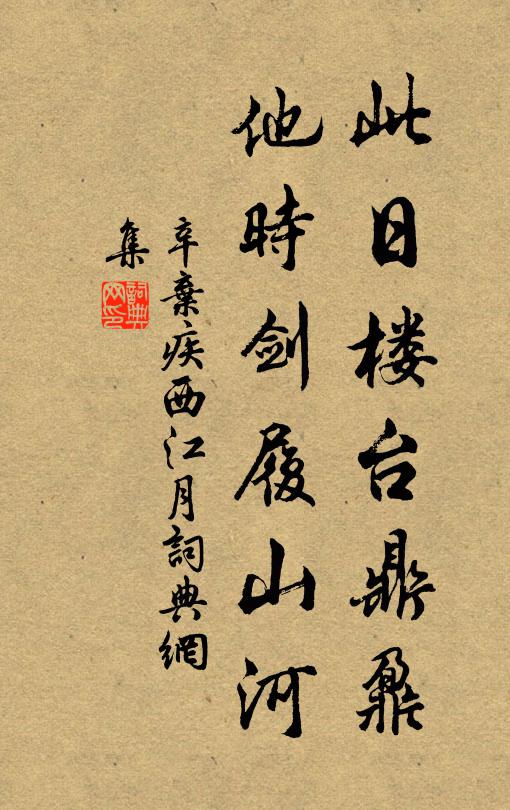 此日楼台鼎鼐
他時剑履山河
辛棄疾西江月詞典網
集
詞典
网印